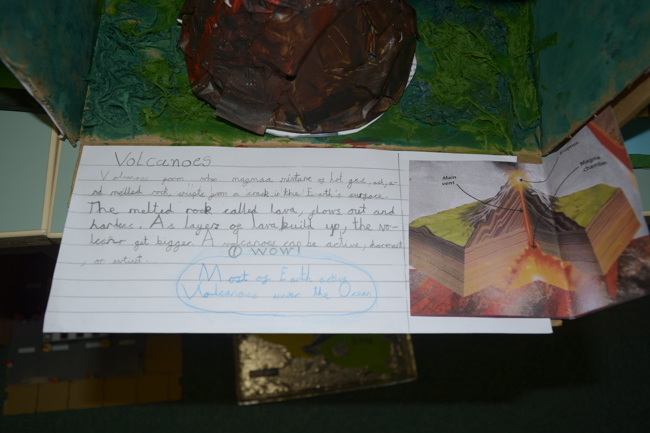 Volcanoes
Volcanoes form when magma mixture of hot gas,
nd melted rock, from a crack in the Earth's surface.
The melted rock called lava, flows out and
hardens. As layers of lava build up, the vo-
get bigger. A volcanoes can be active, dormant
, or
! WOW!
Most of Earth active
Volcanoes under the Ocean
Main
vent
Magma
chamber